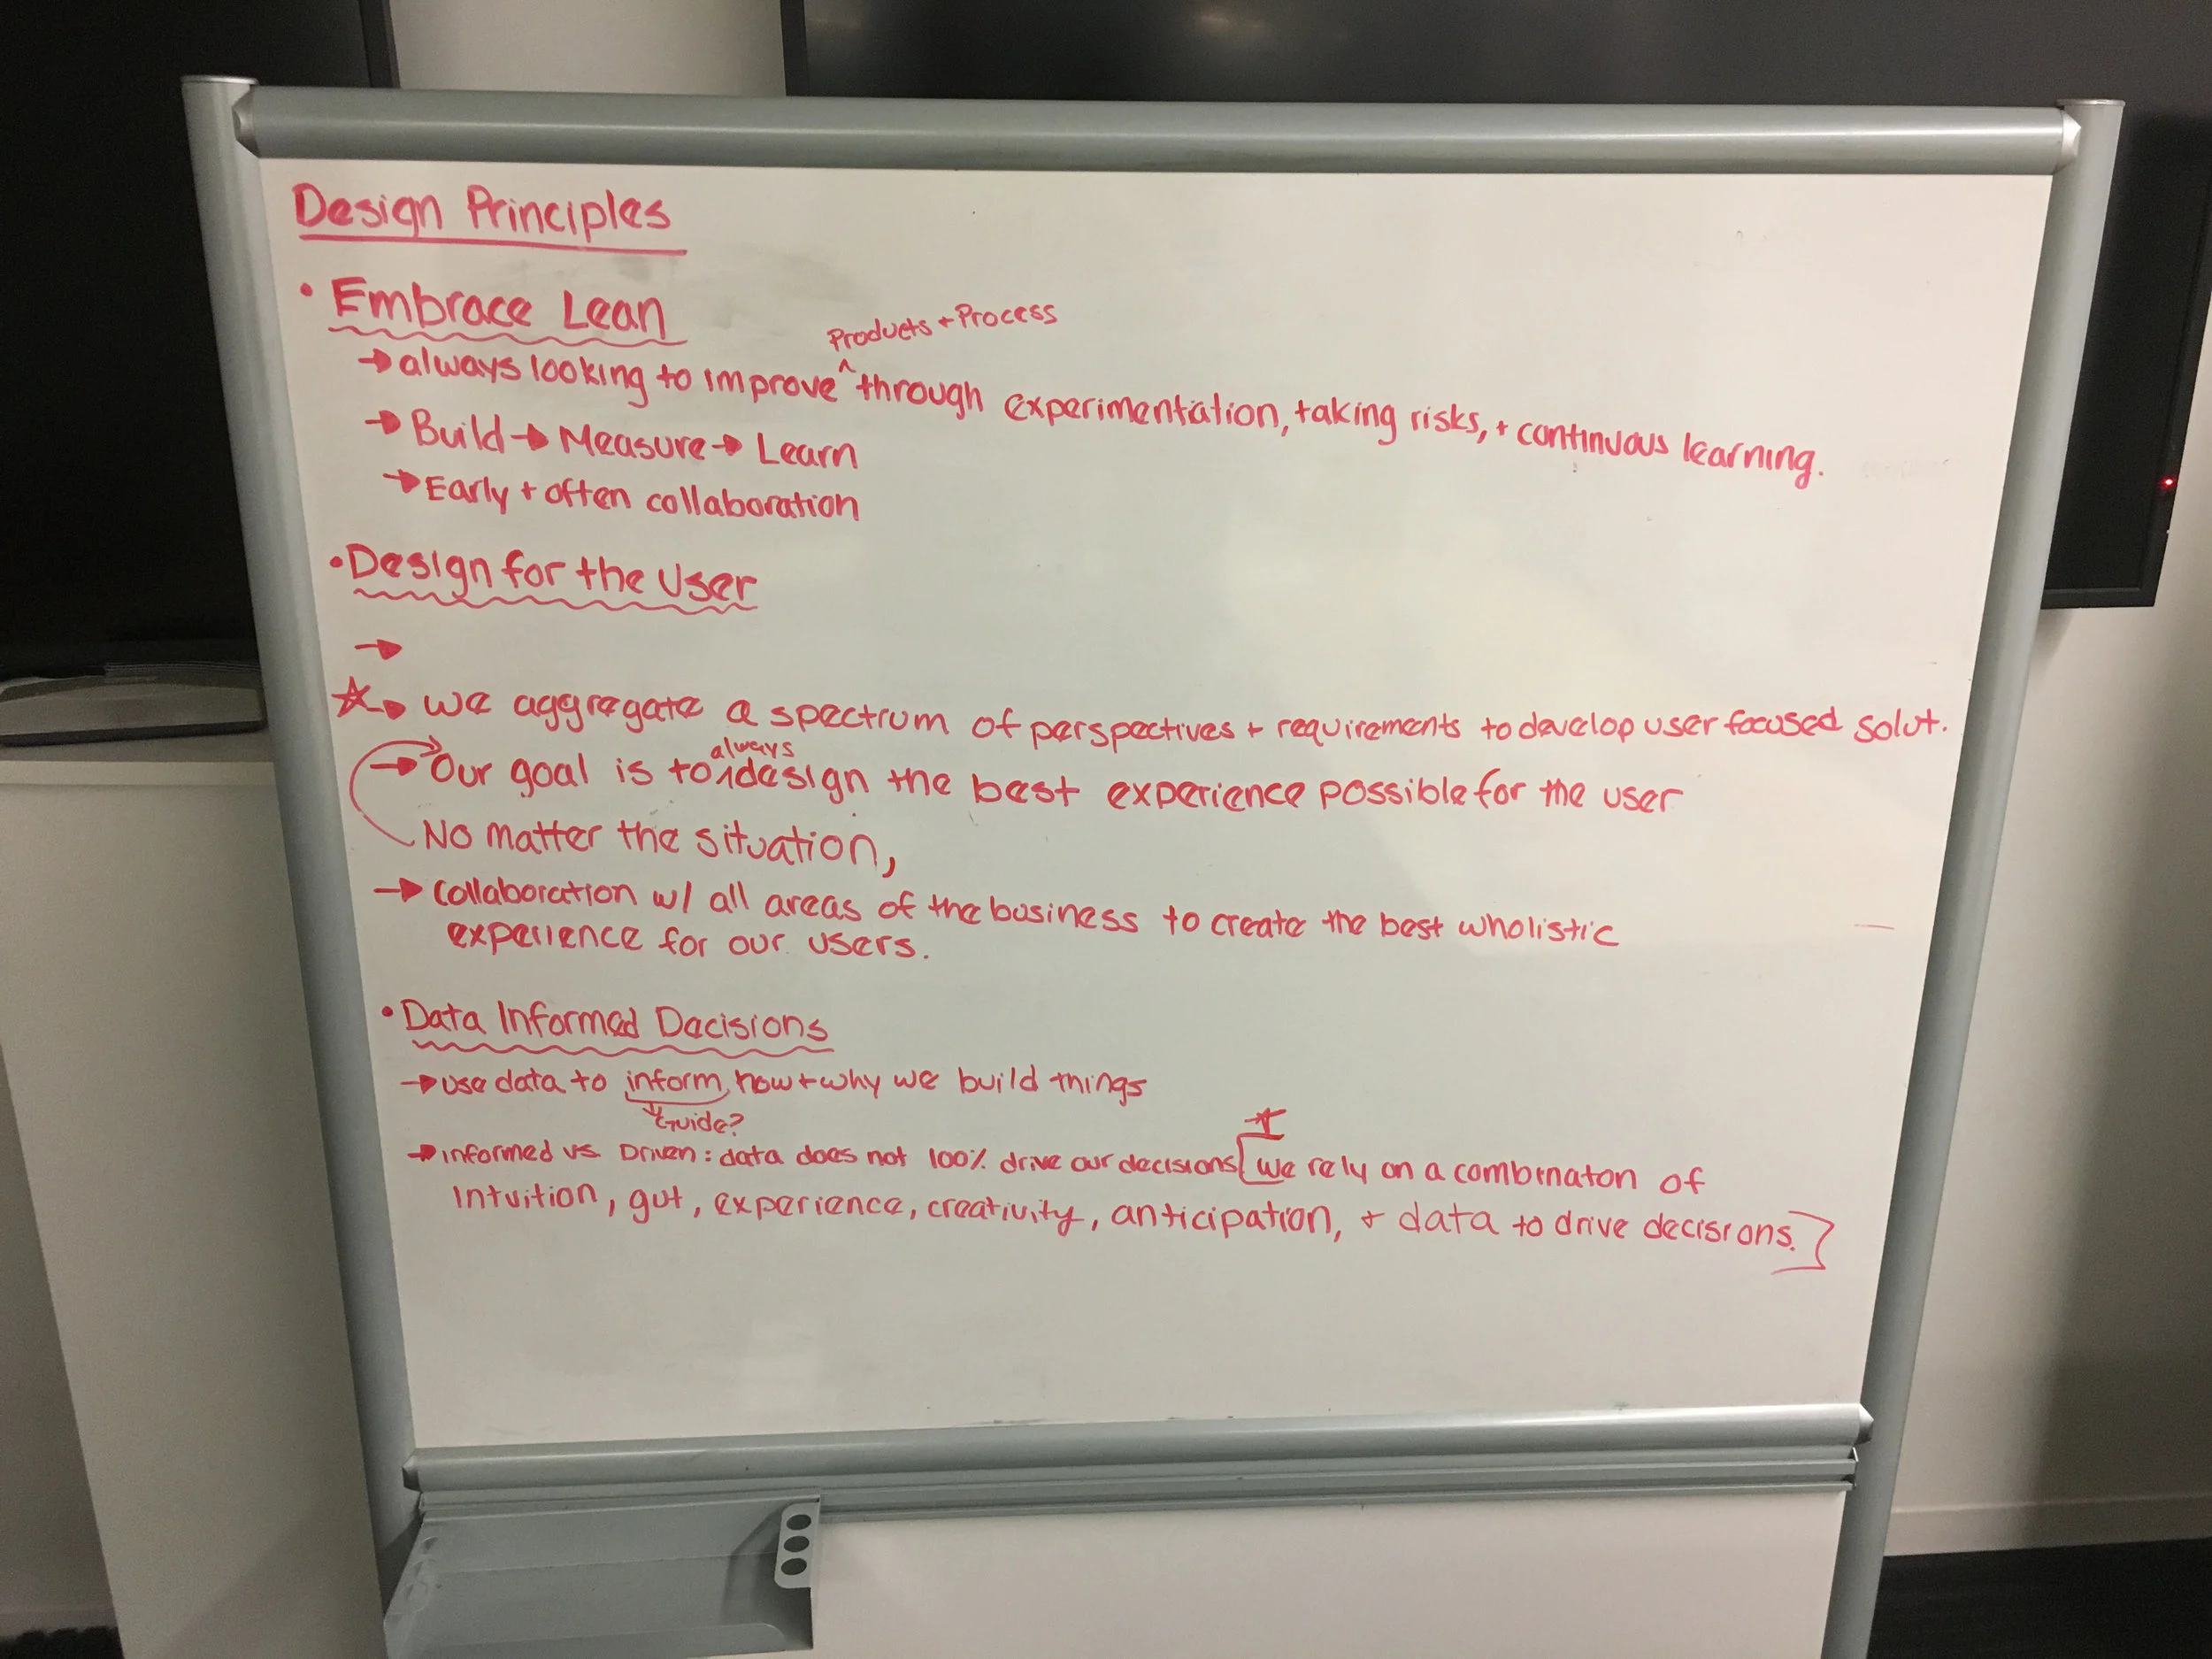 Design Principles
• Embrace Lean
Products + Process
→ always looking to improve ^ through experimentation, taking risks, + continuous learning.
→ Build → Measure → Learn
→ Early + often collaboration
• Design for the User
→
☆→ we aggregate a spectrum of perspectives + requirements to develop user focused solut.
always
→ Our goal is to ^ design the best experience possible for the user
No matter the situation,
→ collaboration w/ all areas of the business to create the best wholistic
experience for our users.
• Data Informed Decisions
→ use data to inform how + why we build things
Guide?
→ informed vs. Driven: data does not 100% drive our decisions [we rely on a combinaton of
Intuition, gut, experience, creativity, anticipation, + data to drive decisions.]